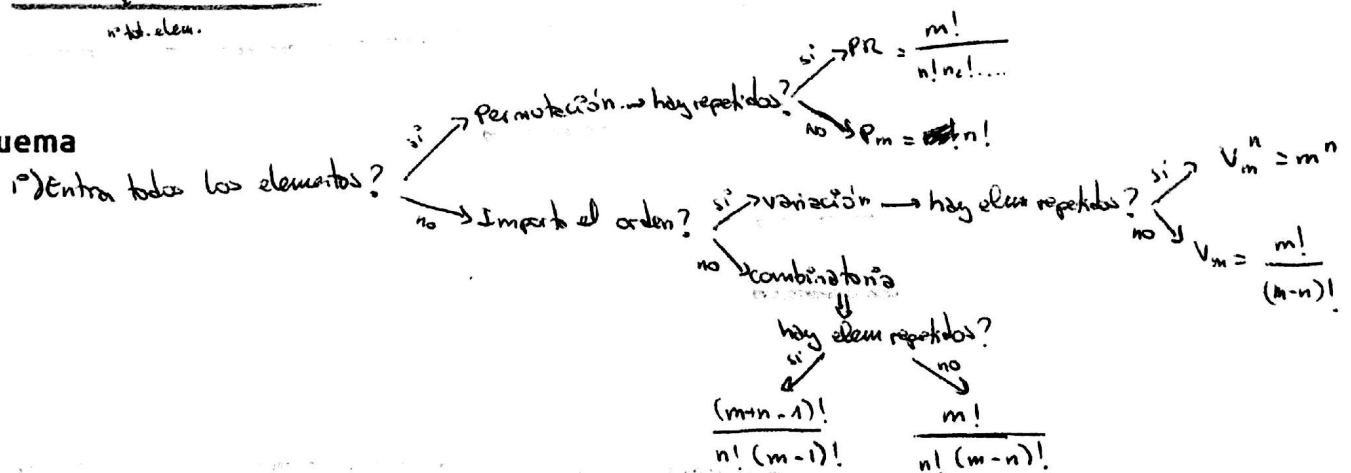 nº tot. elem.
uema
1º) Entra todos los elementos?
sí
Permutación → hay repetidos?
sí
PR = m! / n! n₂! ....
no
Pₘ = n!
no
Importa el orden?
sí
variación → hay elem repetidos?
sí
Vₘⁿ = mⁿ
no
Vₘ = m! / (m-n)!
no
combinatoria
hay elem repetidos?
sí
(m+n-1)! / n! (m-1)!
no
m! / n! (m-n)!